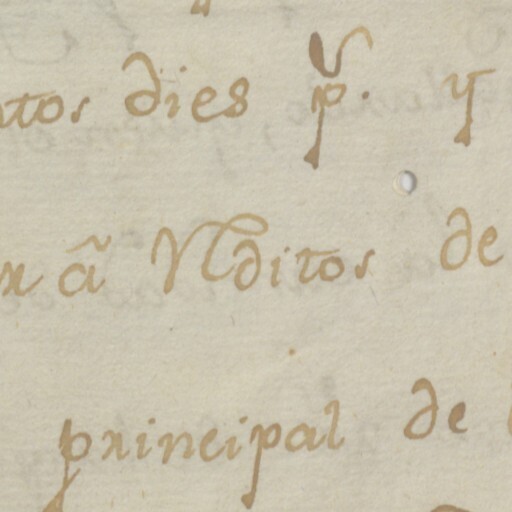 ntos dies p. y
x ã Vlditos de
principal de